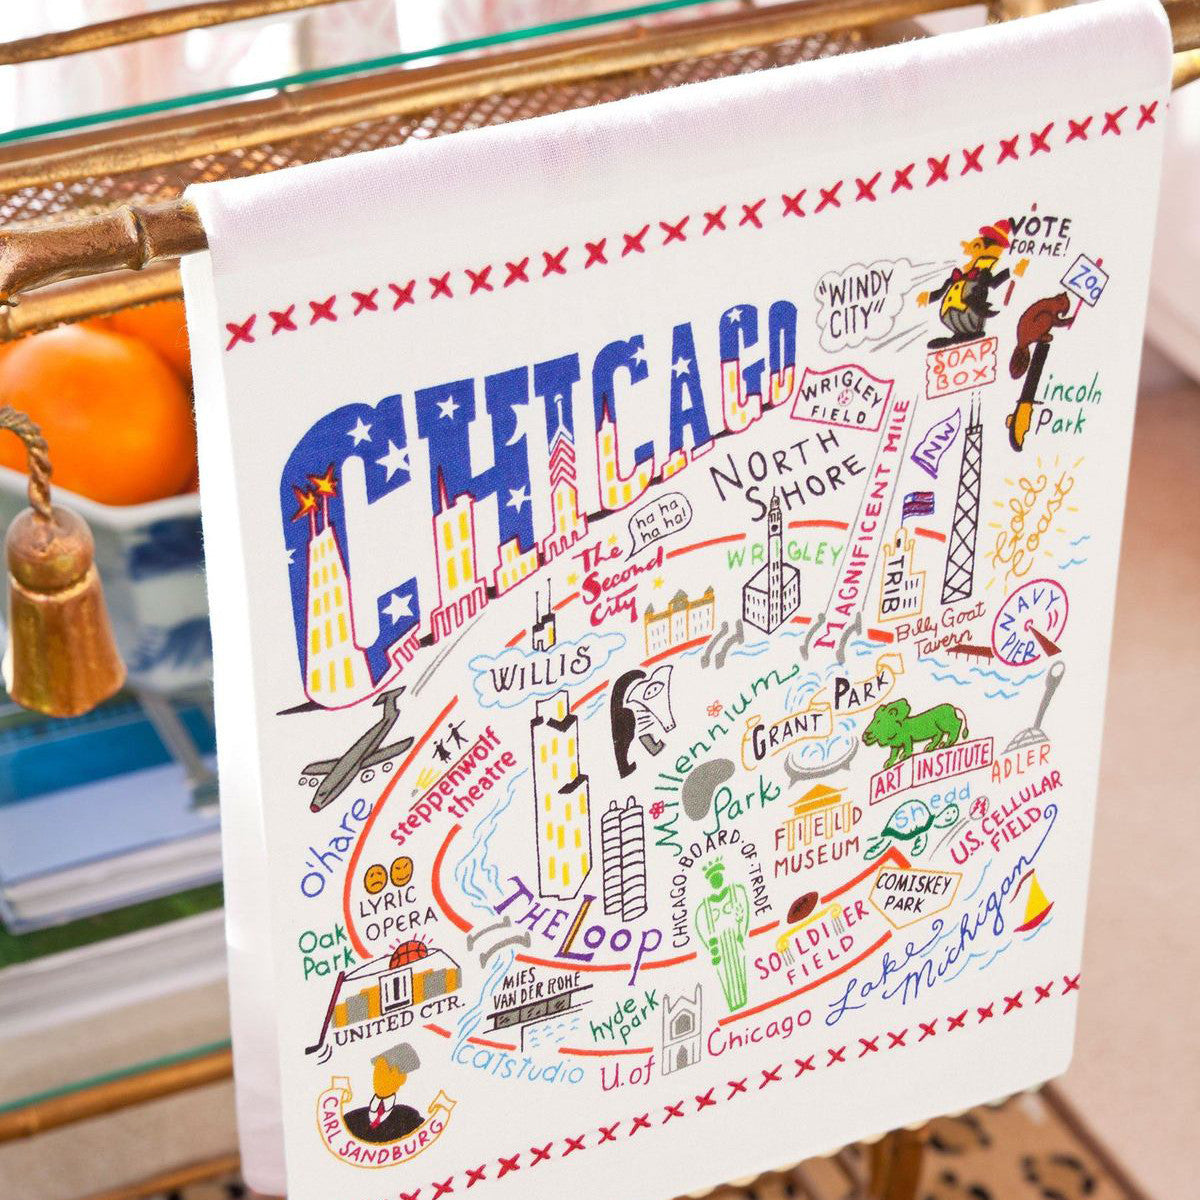 CHICAGO
"WINDY
CITY"
VOTE
FOR ME!
SOAP
BOX
ZOO
Lincoln
Park
WRIGLEY
FIELD
NORTH
SHORE
MAGNIFICENT MILE
NW
Gold
Coast
ha ha
ha ha!
The
Second
City
WRIGLEY
TRIB
Billy Goat
Tavern
NAVY
PIER
WILLIS
steppenwolf
theatre
O'hare
Millennium
Park
GRANT PARK
ART INSTITUTE
ADLER
FIELD
MUSEUM
Shedd
U.S. CELLULAR
FIELD
LYRIC
OPERA
THE LOOP
CHICAGO·BOARD·OF·TRADE
SOLDIER
FIELD
COMISKEY
PARK
Lake
Michigan
Oak
Park
UNITED CTR.
MIES
VAN DER ROHE
hyde
park
catstudio
U. of Chicago
CARL SANDBURG